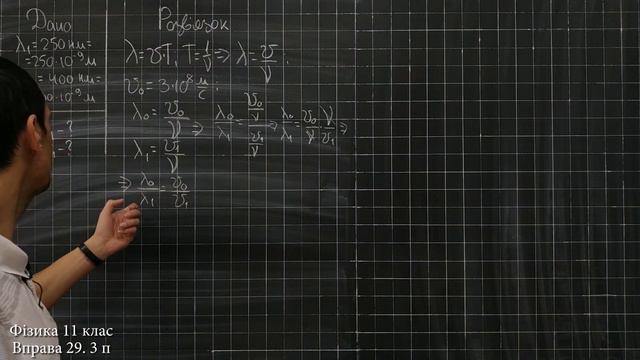 Дано
λ₁=250нм=
=250·10⁻⁹м
=400нм=
·10⁻⁹м
-?
-?
Розв'язок
λ=υ·T; T=1/ν ⇒ λ=υ/ν;
υ₀=3·10⁸ м/с;
λ₀=υ₀/ν
λ₁=υ₁/ν
⇒ λ₀/λ₁=(υ₀/ν)/(υ₁/ν) ⇒ λ₀/λ₁=υ₀/ν·ν/υ₁ ⇒
⇒ λ₀/λ₁=υ₀/υ₁
Фізика 11 клас
Вправа 29. 3 п